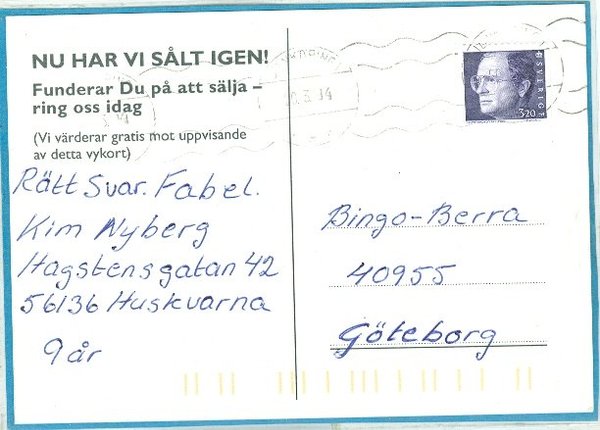 NU HAR VI SÅLT IGEN!
Funderar Du på att sälja –
ring oss idag
(Vi värderar gratis mot uppvisande
av detta vykort)
Rätt Svar. Fabel.
Kim Nyberg
Hagstensgatan 42
56136 Huskvarna
9 år
SVERIGE
3.20
Bingo-Berra
40955
Göteborg